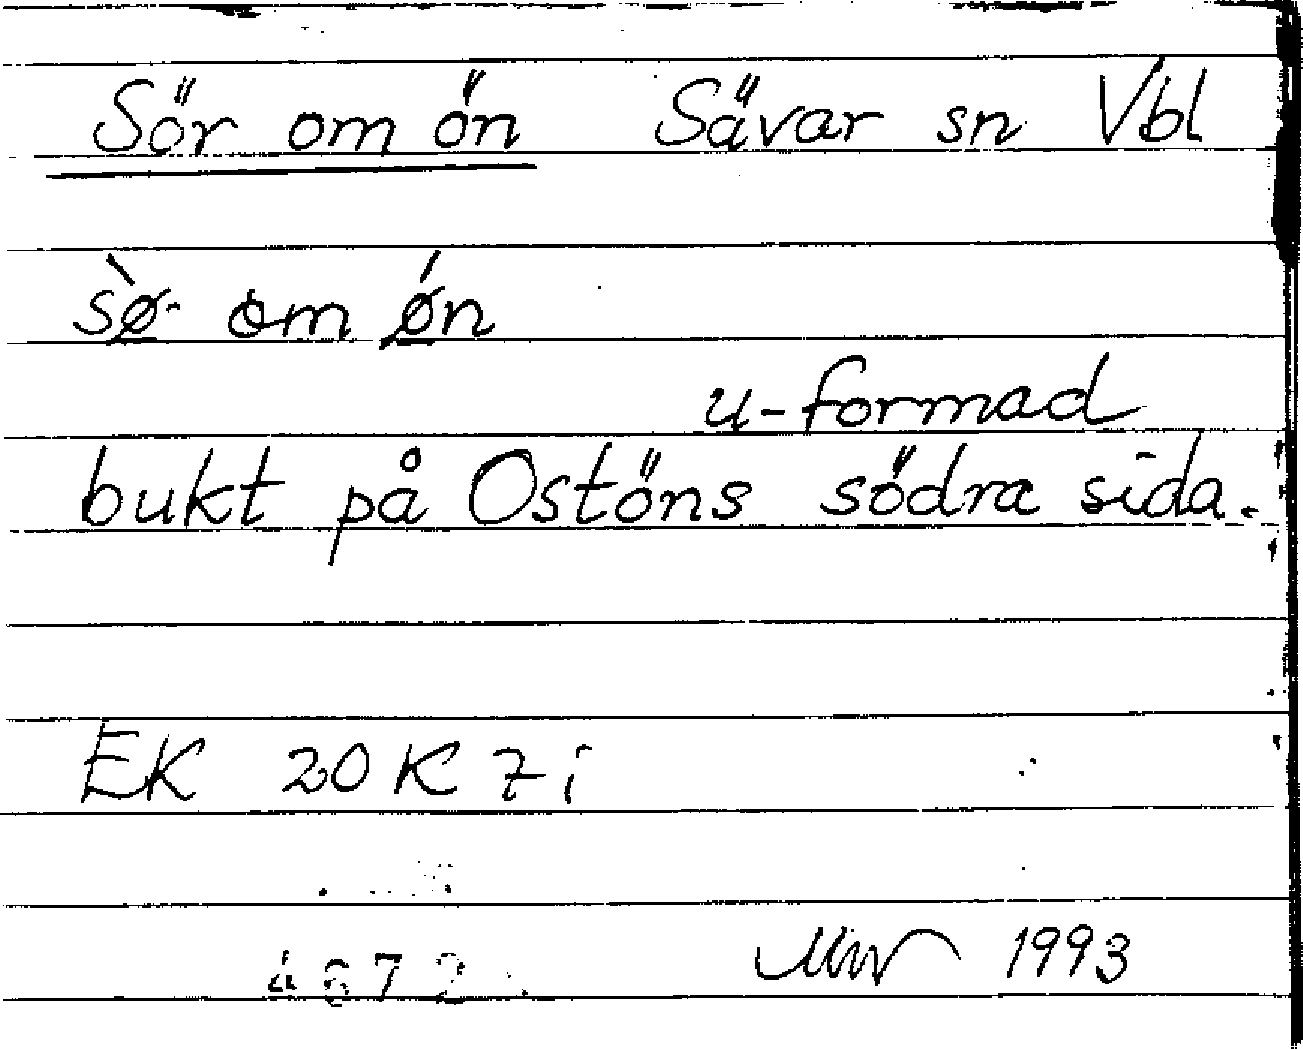 Sör om ön Sävar sn Vbl
sø̀ om ǿn
u-formad
bukt på Ostöns södra sida.
EK 20 K 7 i
1993